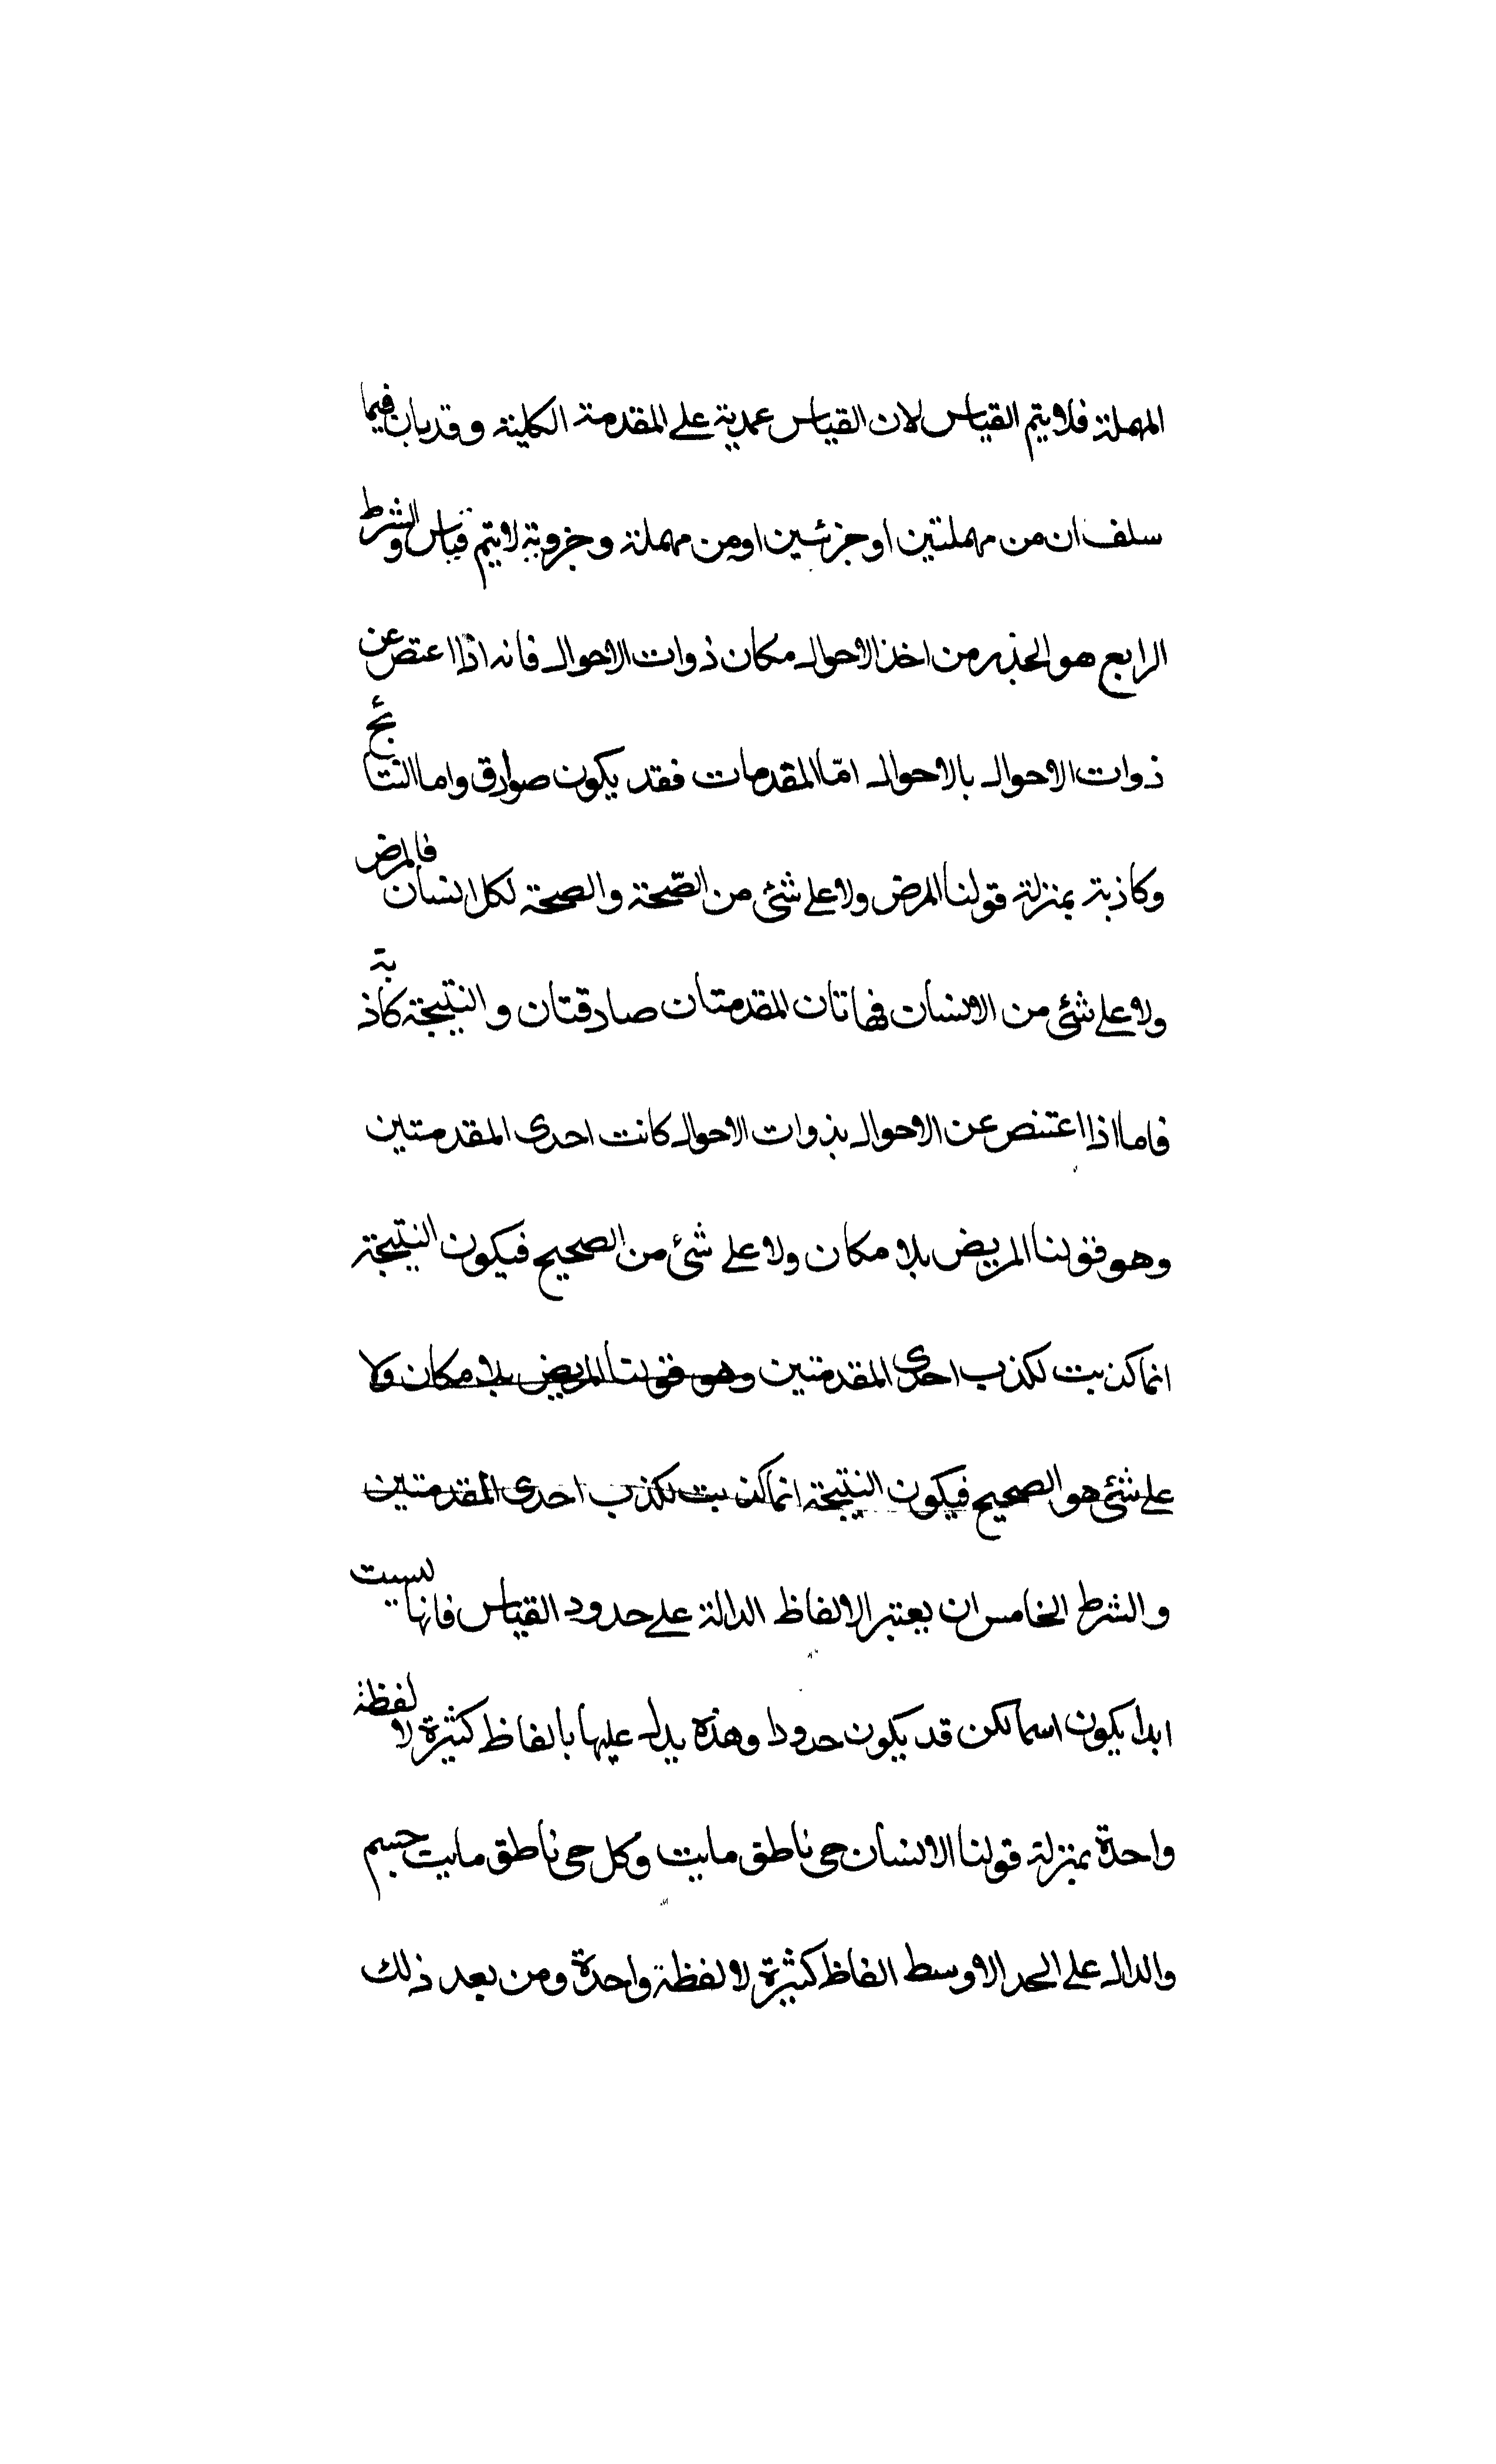 المهملة فلا يتم القياس لان القياس عمدية على المقدمة الكلية وقد بان فيما
سلف ان من مهملتين او جزئين او من مهملة وجزوية لا يتم قياس والشرط
الرابع هو الحذر من اخذ الاحوال مكان ذوات الاحوال فانه اذا اعتص عن
ذوات الاحوال بالاحوال امّا المقدمات فقد يكون صوادق واما النتائج
وكاذبة بمنزلة قولنا المرض ولا على شئ من الصّحة والصحة لكل انسان فالمرض
ولا على شئ من الانسان فهاتان المقدمتان صادقتان والنتيجة كاذبة
فاما اذا اعتنص عن الاحوال بذوات الاحوال كانت احدى المقدمتين
وهو قولنا المريض بلا مكان ولا على شئ من الصحيح فيكون النتيجة
انما كذبت لكذب احدى المقدمتين وهو قولنا المريض بلا مكان ولا
على شئ هو الصحيح فيكون النتيجة انما كذبت لكذب احدى المقدمتين
والشرط الخامس ان يعتبر الالفاظ الدالة على حدود القياس فانها ليست
ابدا يكون اسما لكن قد يكون حدودا وهذه يدل عليها بالفاظ كثيرة لا لفظة
واحدة بمنزلة قولنا الانسان حى ناطق مايت وكل حى ناطق مايت جسم
والدال على الحد الاوسط الفاظ كثيرة لا لفظة واحدة ومن بعد ذلك